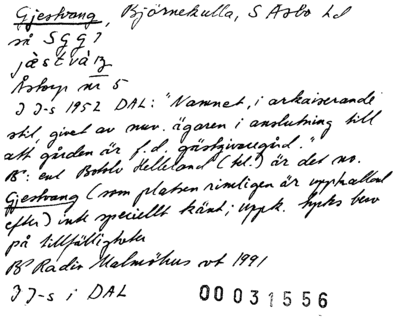 Gjestvang, Björnekulla, S Åsbo hd
så SGG7
jæ̀stvàŋ
Åstorp nr 5
I J-s 1952 DAL: "Namnet, i arkaiserande
stil, givet av nuv. ägaren i anslutning till
att gården är f.d. gästgivaregård."
B°: enl Botolv Helleland (tel.) är det no.
Gjestvang (som platsen rimligen är uppkallad
efter) inte speciellt känt; uppk. tycks bero
på tillfälligheter
B° Radio Malmöhus vt 1991
I J-s i DAL
00031556